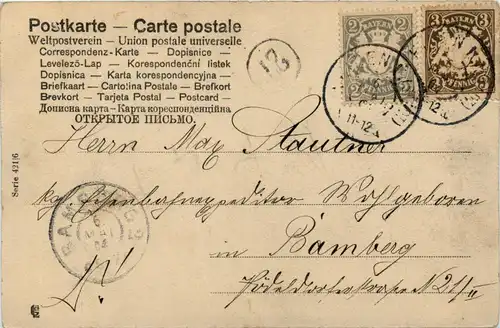 Postkarte — Carte postale
Weltpostverein – Union postale universelle
Correspondenz-Karte — Dopisnice —
Levelező-Lap — Korespondenční lístek
Dopisnica — Karta korespondencyjna —
Briefkaart — Cartolina Postale — Brefkort
Brevkort — Tarjeta Postal — Postcard —
Дописна карта — Карта кореспонденційна
ОТКРЫТОЕ ПИСЬМО.
21
2 BAYERN 2
PFENNIG
3 BAYERN 3
PFENNIG
11-12
Herrn Max Stautner
kgl. Eisenbahnexpeditor Wohlgeboren
in Bamberg
21/II
BAMBERG 2
MAI
Serie 421/6